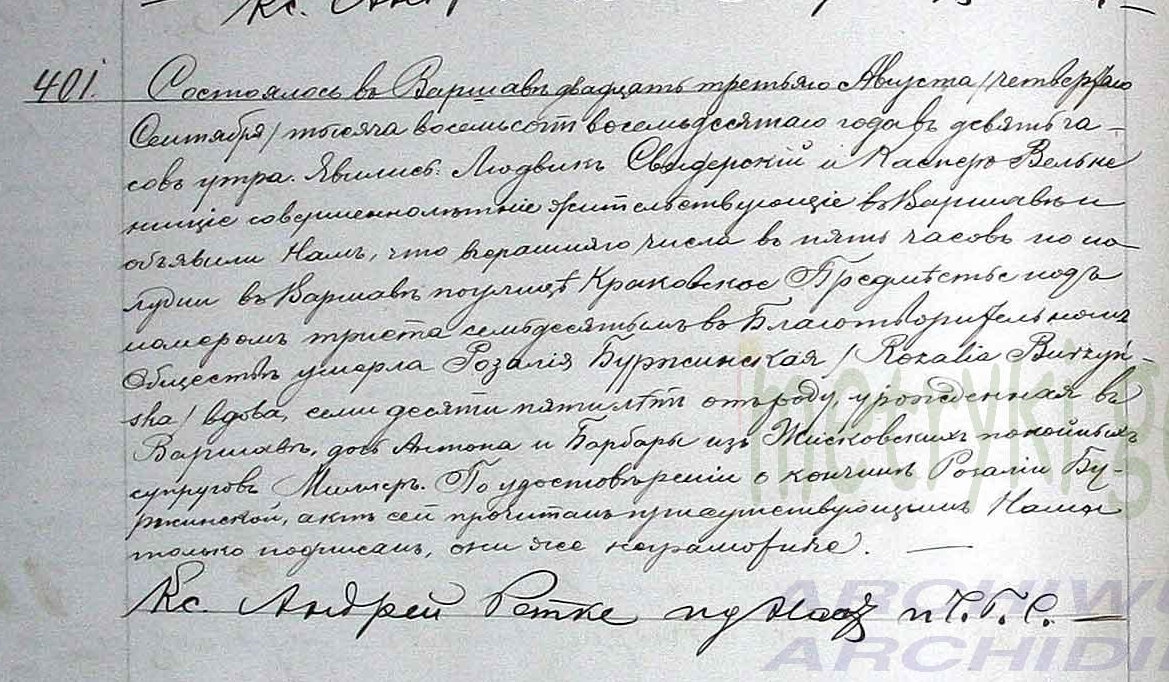 Кс. Андр
401. Состоялось въ Варшавѣ двадцать третьяго Августа /четвертаго
Сентября/ тысяча восемьсотъ восемьдесятаго года въ девять ча-
совъ утра. Явились: Людвикъ Свидерскій и Касперъ Вельке
нищіе совершеннолѣтніе жительствующіе въ Варшавѣ и
объявили Намъ, что вчерашняго числа въ пять часовъ по по-
лудни въ Варшавѣ по улицѣ Краковское Предмѣстье подъ
номеромъ триста семьдесятымъ въ Благотворительномъ
Обществѣ умерла Розалія Буржинская /Rozalia Burzyń-
ska/ вдова, семидесяти пяти лѣтъ отъ роду, урожденная въ
Варшавѣ, дочь Антона и Барбары изъ Жисковскихъ покойныхъ
супруговъ Миллеръ. По удостовѣреніи о кончинѣ Розаліи Бу-
ржинской, актъ сей прочитанъ присутствующимъ Нами
только подписанъ, они же неграмотные.
Кс. Андрей Ретке
metryki.g
ARCHIWU
ARCHIDI